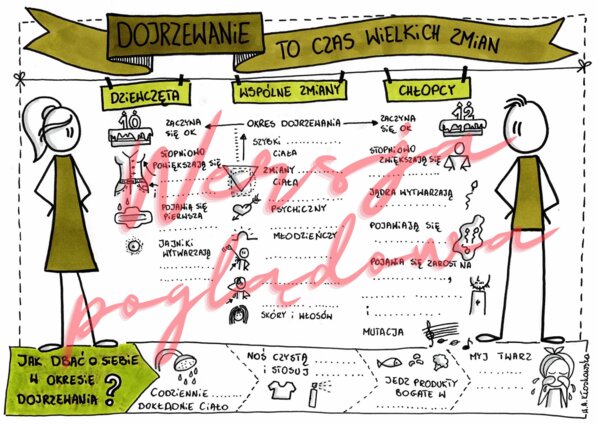 DOJRZEWANIE TO CZAS WIELKICH ZMIAN
DZIEWCZĘTA
10
ZACZYNA
SIĘ OK.
STOPNIOWO
POWIĘKSZAJĄ SIĘ
POJAWIA SIĘ
PIERWSZA
JAJNIKI
WYTWARZAJĄ
WSPÓLNE ZMIANY
OKRES DOJRZEWANIA
SZYBKI
CIAŁA
ZMIANY
CIAŁA
PSYCHICZNY
MŁODZIEŃCZY
SKÓRY I WŁOSÓW
CHŁOPCY
12
ZACZYNA
SIĘ OK.
STOPNIOWO
ZWIĘKSZAJĄ SIĘ
JĄDRA WYTWARZAJĄ
POJAWIAJĄ SIĘ
POJAWIA SIĘ ZAROST NA
MUTACJA
Wersja
poglądowa
JAK DBAĆ O SIEBIE
W OKRESIE
DOJRZEWANIA?
CODZIENNIE
DOKŁADNIE CIAŁO
NOŚ CZYSTĄ
I STOSUJ
JEDZ PRODUKTY
BOGATE W
MYJ TWARZ